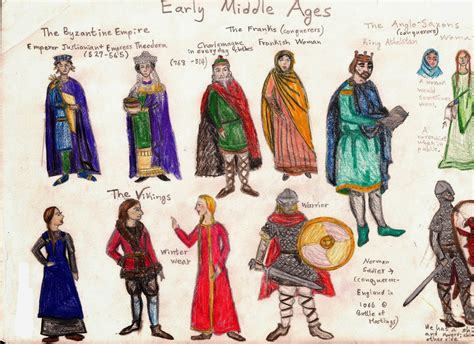 Early Middle Ages
The Byzantine Empire
Emperor Justinian & Empress Theodora
(527-565)
The Franks (conquerers)
Charlemagne
in everyday clothes
(768-814)
Frankish Woman
The Anglo-Saxons
(conquerers)
King Athelstan
Woman
A woman
would
sometimes
wear
A
when in
public.
The Vikings
Winter
wear
Warrior
Norman
Soldier →
(conquerers)
England in
1066 @
Battle of
Hastings)
He has a
and
other side